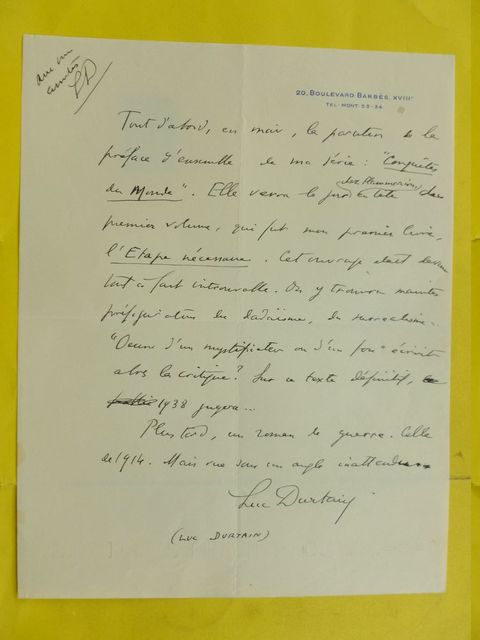 avec mes
amitiés
LD
20, BOULEVARD BARBÈS. XVIIIe
TEL. MONT. 53-34
Tout d'abord, en mai, la parution de la
préface d'ensemble de ma série : "Conquêtes
chez Flammarion
du Monde". Elle verra le jour en tête du
premier volume, qui fut mon premier livre,
l'Etape nécessaire. Cet ouvrage était devenu
tout à fait introuvable. On y trouvera maintes
préfigurations du dadaïsme, du surréalisme..
"Oeuvre d'un mystificateur ou d'un fou" écrivit
alors la critique? Sur ce texte définitif,
1938 jugera...
Plus tard, un roman de guerre. Celle
de 1914. Mais vue sous un angle inattendu
Luc Durtain
(LUC DURTAIN)